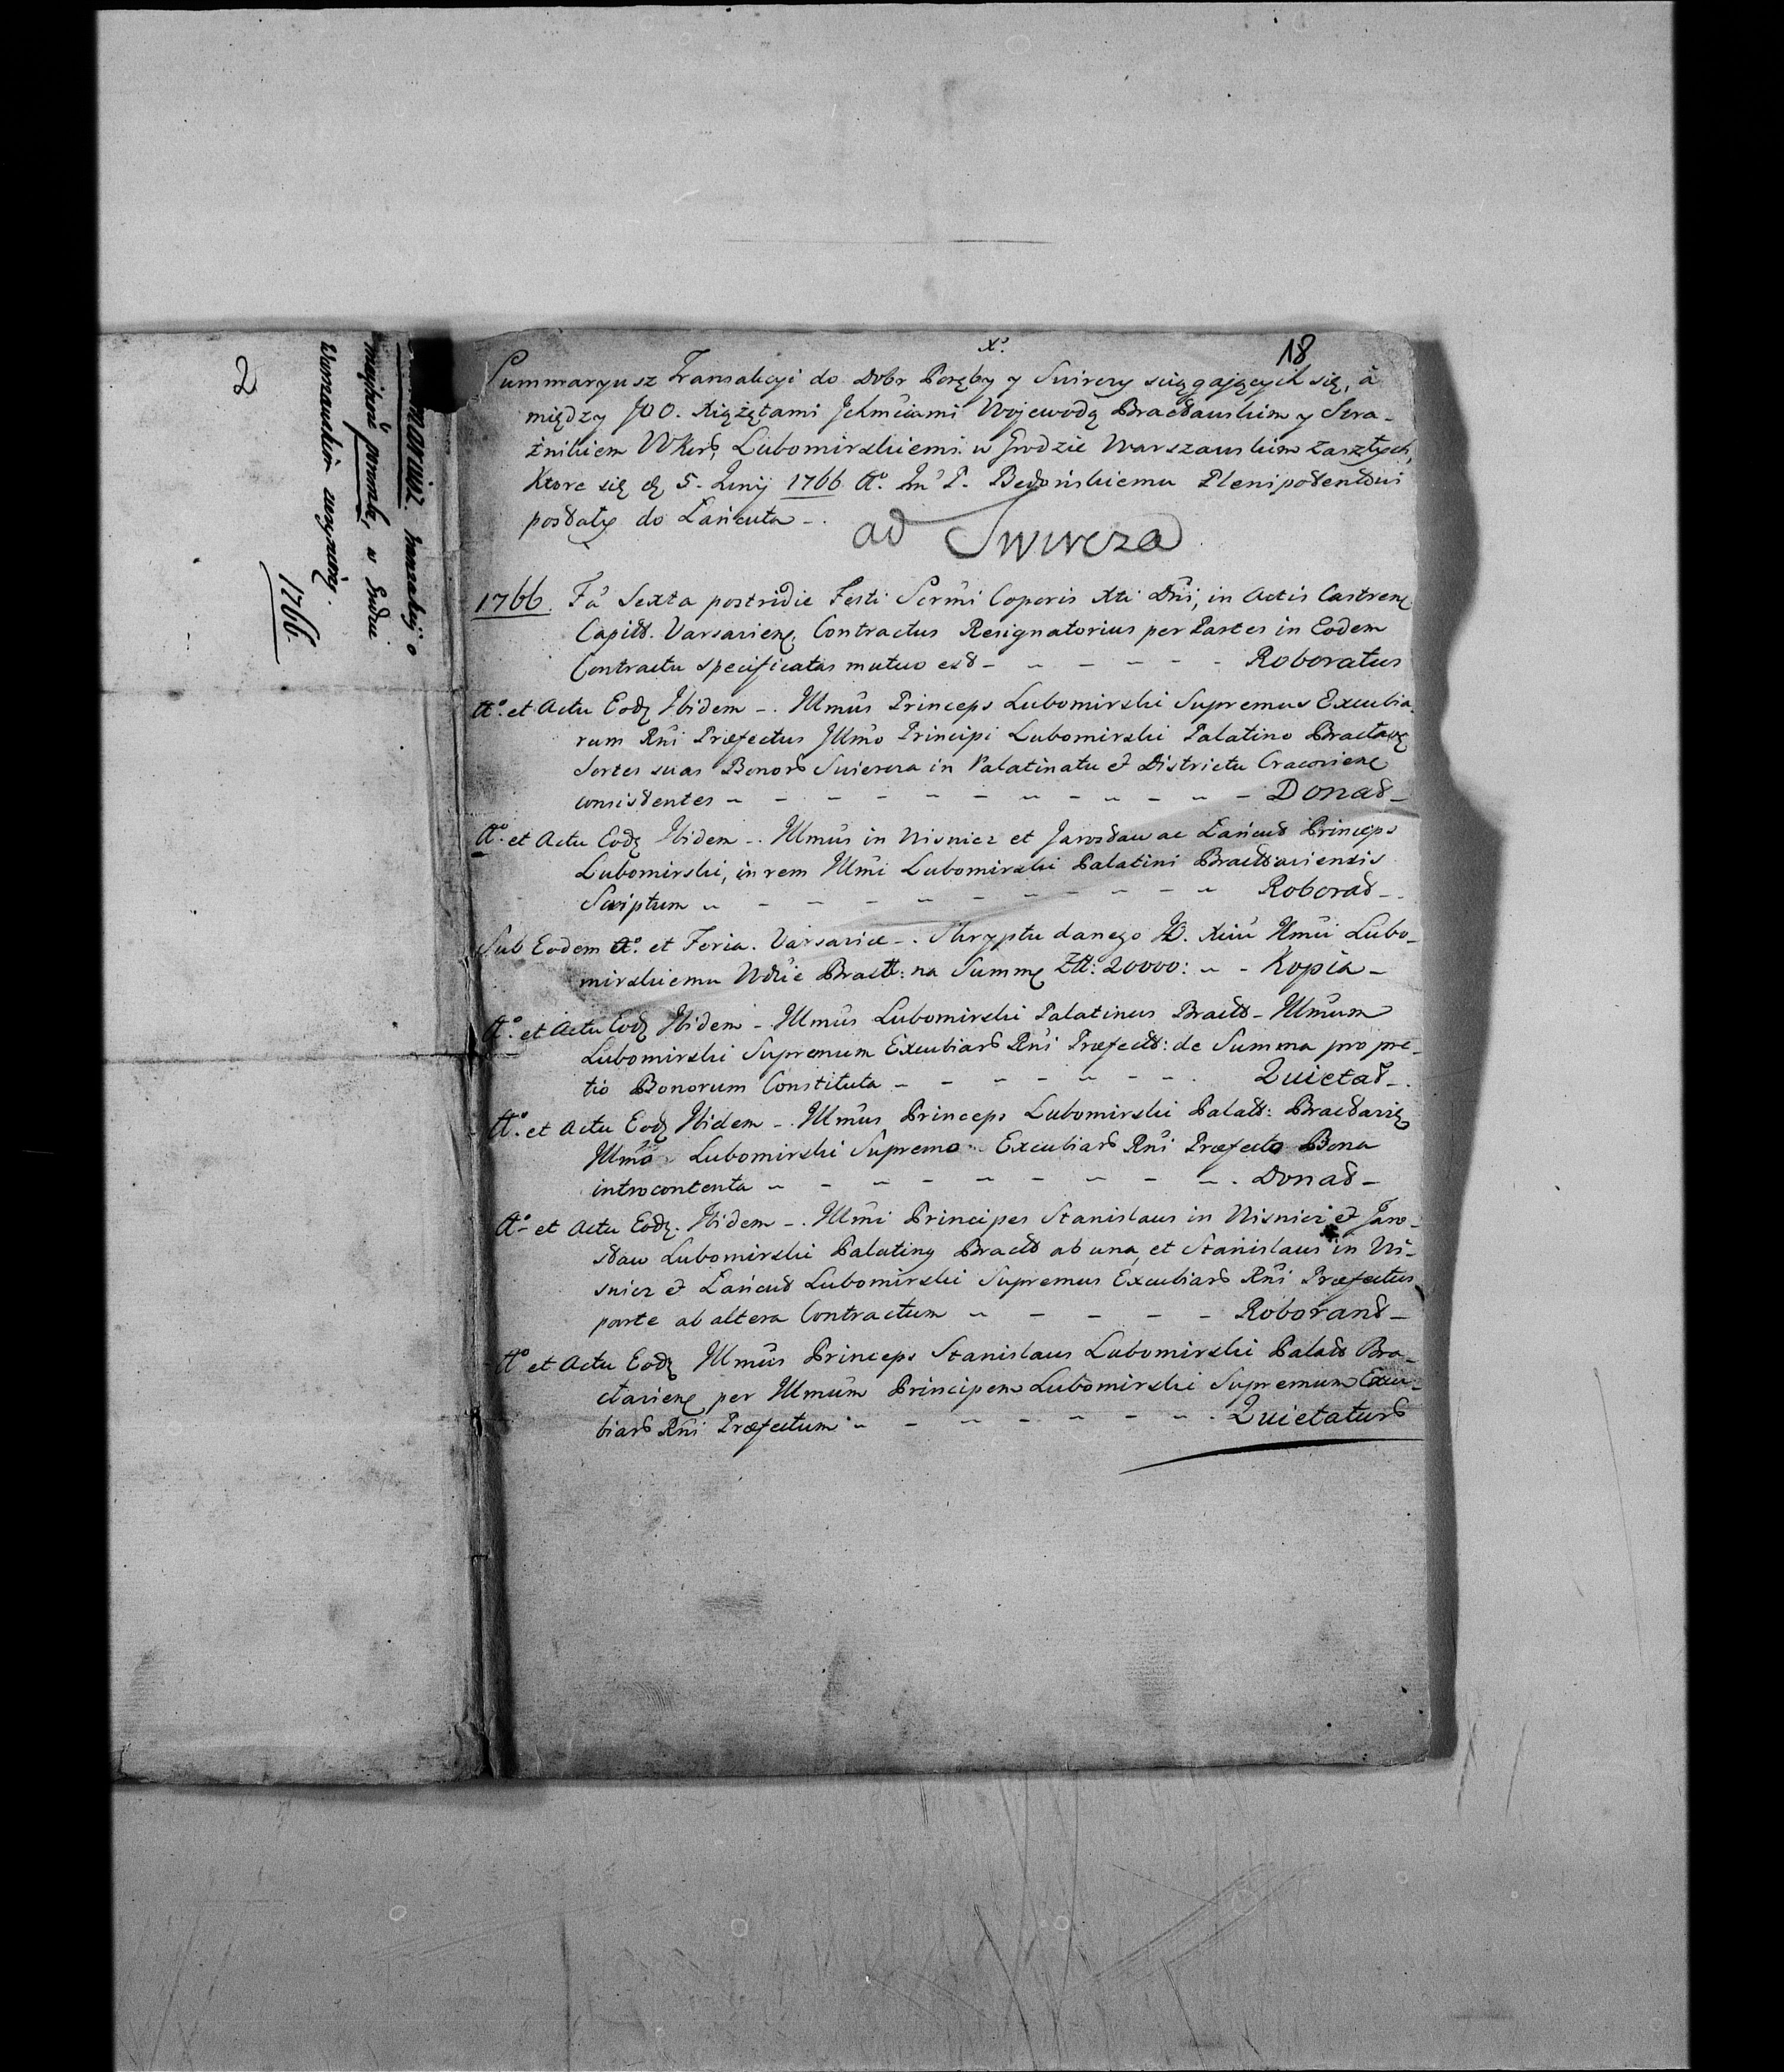 Summariusz tranzakcij o
majętność porembę, w Grodzie
Warszawskim uczyniony.
1766.
2
X.
18
Summaryusz Transakcyi do Dobr Poręby y Swirczy sciągaiących się, à
między JOO. Xiążętami Jchmciami Wojewodą Bracławskim y Stra-
żnikiem WKor. Lubomirskiemi w Grodzie Warszawskim zaszłych,
Ktore się d. 5. Junij 1766 Ao. Jm P. Bedońskiemu Plenipotentowi
posłały do Łańcuta -.
ad Swircza
1766. Fa Sexta postridie Festi Sermi Coporis Xti Dni, in Actis Castren
Capitt. Varsavien. Contractus Resignatorius per Partes in Eodem
Contractu specificatas mutuo est - Roboratus
Ao. et Actu Eod Ibidem -. Illmus Princeps Lubomirski Supremus Excubia-
rum Rni Præfectus Jllmo Principi Lubomirski Palatino Braclav
Sortes suas Bonor Swiercza in Palatinatu et Districtu Cracovien
consistentes - Donat -
Ao. et Actu Eod Ibidem -. Illmus in Wisnicz et Jarosław ac Łańcut Princeps
Lubomirski, in rem Illmi Lubomirski Palatini Bracłaviensis
Scriptum - Roborat -
Sub Eodem Ao. et Feria. Varsaviæ -. Skryptu danego JO. Xciu Jmci Lubo-
mirskiemu Wdzie Bracł: na Summę Złł: 20000: - Kopia -
Ao. et Actu Eod Ibidem -. Illmus Lubomirski Palatinus Bracł - Illmum
Lubomirski Supremum Excubiar Rni Præfectt: de Summa pro pre-
tio Bonorum Constituta - Quietat -.
Ao. et Actu Eod Ibidem -. Illmus Princeps Lubomirski Palatt: Bracłavien
Jllmo Lubomirski Supremo Excubiar Rni Præfecto Bona
introcontenta - Donat -
Ao. et Actu Eod. Ibidem -. Illmi Principes Stanislaus in Wisnicz et Jaro-
sław Lubomirski Palatiny Bracł ab una, et Stanislaus in Wi-
snicz et Łańcut Lubomirski Supremus Excubiar Rni Præfectus
parte ab altera Contractum - Roborant -
Ao. et Actu Eod Illmus Princeps Stanislaus Lubomirski Palatt Bra-
clavien per Illmum Principem Lubomirski Supremum Excu-
biar Rni Præfectum - Quietatur